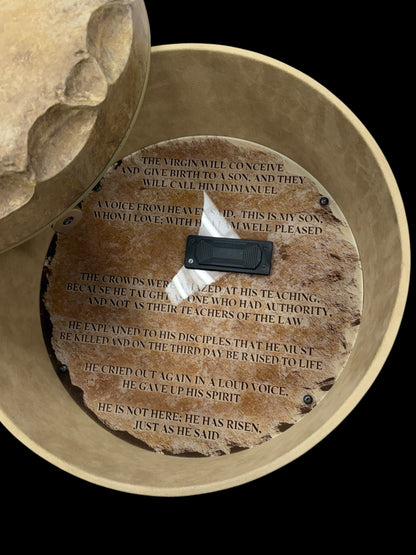 THE VIRGIN WILL CONCEIVE
AND GIVE BIRTH TO A SON, AND THEY
WILL CALL HIM IMMANUEL
A VOICE FROM HEAVEN THIS IS MY SON,
WHOM I LOVE; WITH I M WELL PLEASED
THE CROWDS WERE AT HIS TEACHING,
BECAUSE HE ONE WHO HAD AUTHORITY,
AND NOT AS THEIR TEACHERS OF THE LAW
HE EXPLAINED TO HIS DISCIPLES THAT HE MUST
BE KILLED AND ON THE THIRD DAY BE RAISED TO LIFE
HE CRIED OUT AGAIN IN A LOUD VOICE,
HE GAVE UP HIS SPIRIT
HE IS NOT HERE; HE HAS RISEN,
JUST AS HE SAID